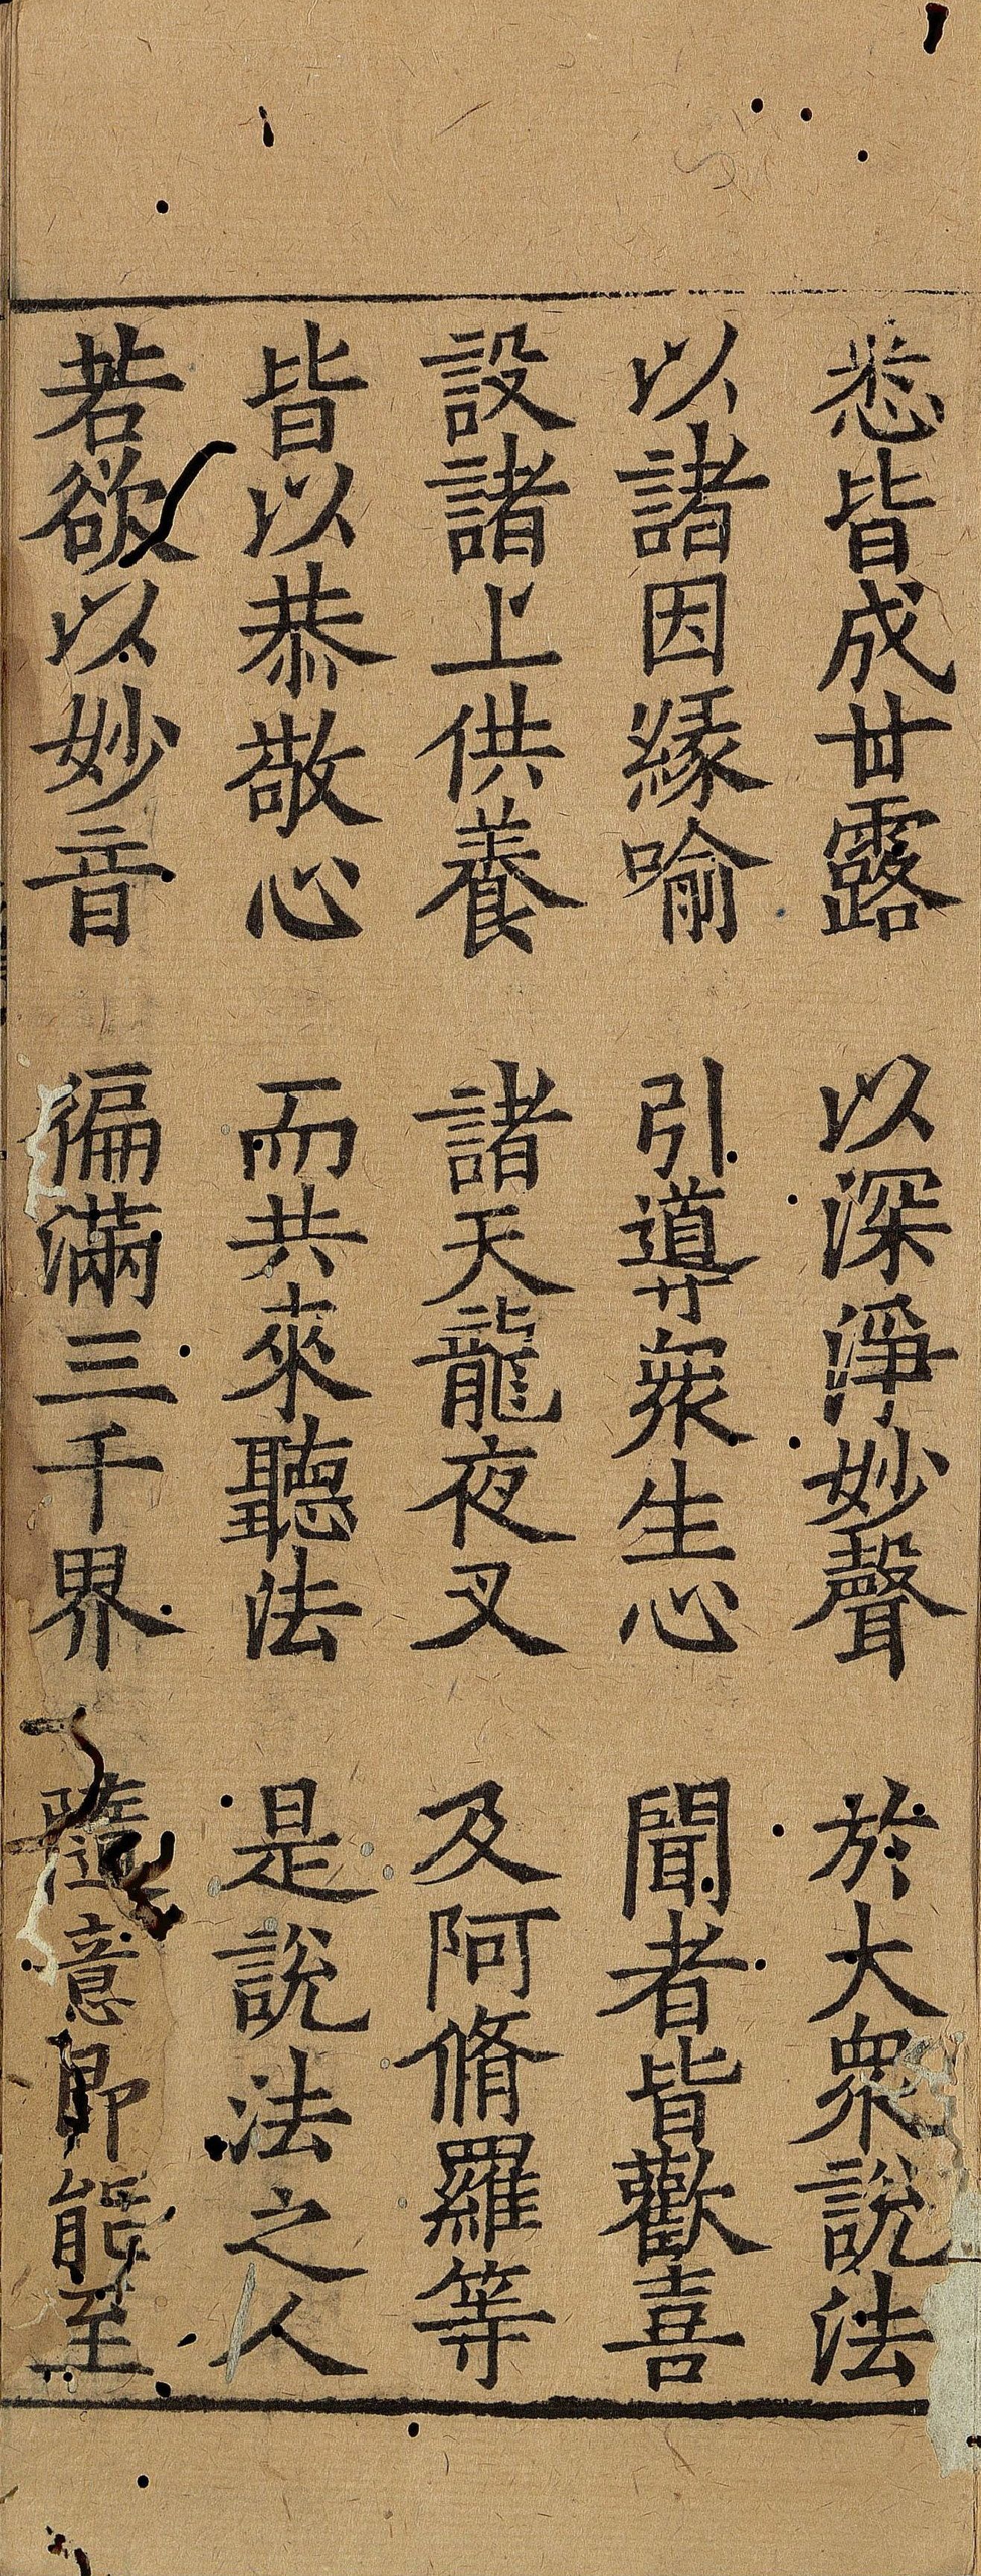 悉皆成甘露　以深淨妙聲　於大衆說法
以諸因縁喻　引導衆生心　聞者皆歡喜
設諸上供養　諸天龍夜叉　及阿脩羅等
皆以恭敬心　而共來聽法　是說法之人
若欲以妙音　徧滿三千界　隨意即能至